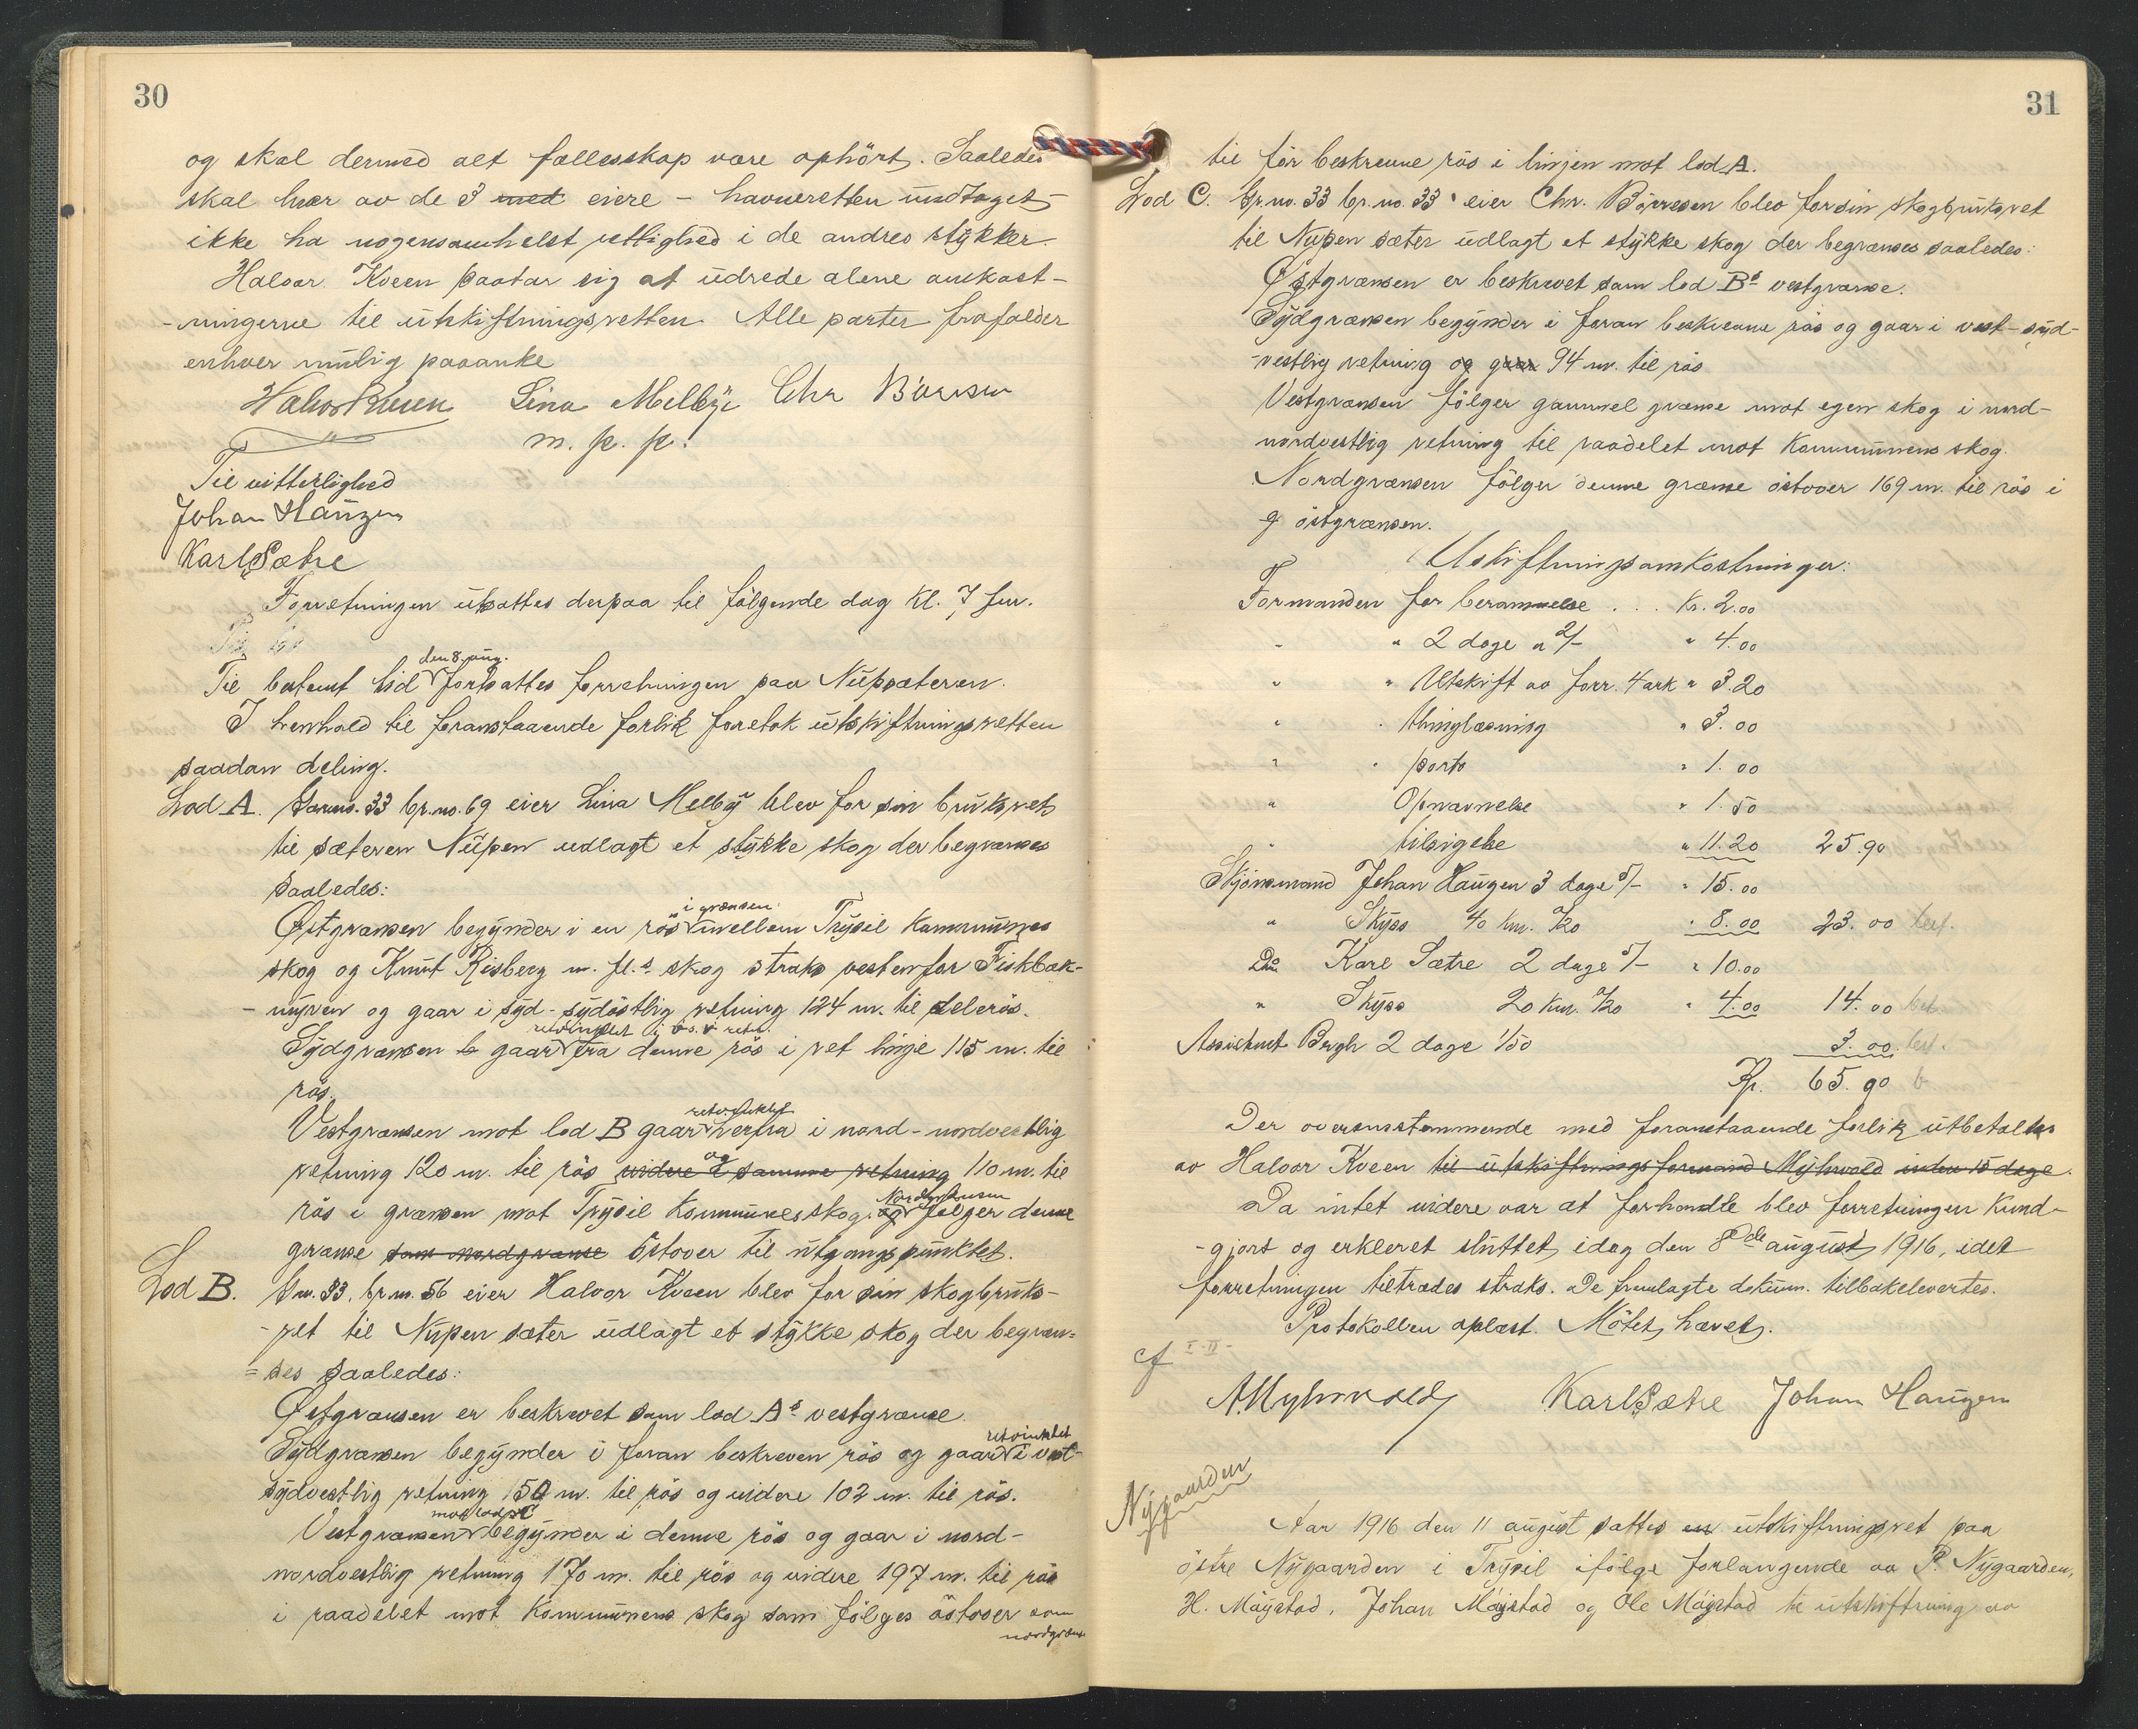 30
og skal dermed alt fællesskap være ophört. Saaledes
skal hver av de 3 med eiere – havneretten undtaget –
ikke ha nogensomhelst rettighed i de andres stykker.
Halvor Kveen paatar sig at udrede alene omkost-
-ningerne til utskiftningsretten. Alle parter frafalder
enhver mulig paaanke
Halvor Kveen Lina Melby Chr Börresen
m. p. p.
Til vitterlighed
Johan Haugen
Karl Sætre
Forretningen utsattes derpaa til fölgende dag kl. 7 fm.
den 8 aug.
Til bestemt tid fortsattes forretningen paa Nupsæteren.
I henhold til foranstaaende forlik foretok utskiftningsretten
saadan deling.
Lod A. Garno. 33 br.no. 69 eier Lina Melby blev for sin bruksret
til sæteren Nupen udlagt et stykke skog der begrænses
saaledes:
i grænsen
Østgrænsen begynder i en rös mellem Trysil kommunes
skog og Knut Risberg m. fl.s skog straks vestenfor Fiskbæk-
- myren og gaar i syd-sydöstlig retning 124 m. til delerös.
retvinklet i v.s.v. retn.
Sydgrænsen b gaar fra denne rös i ret linje 115 m. til
rös.
retvinklet
Vestgrænsen mot lod B gaar herfra i nord-nordvestlig
og
retning 120 m. til rös videre i samme retning 110 m. til
Nordgrænsen
rös i grænsen mot Trysil kommunes skog. og fölger denne
grænse som nordgrænse östover til utgangspunktet.
Lod B. Gn. 33. br.n. 56 eier Halvor Kveen blev for sin skogbruks-
-ret til Nupen sæter udlagt et stykke skog der begræn=
=ses saaledes:
Østgrænsen er beskrevet som lod As vestgrænse.
retvinklet
Sydgrænsen begynder i foran beskreven rös og gaar i vest-
sydvestlig retning 150 m. til rös og videre 102 m. til rös.
mot lod C
Vestgrænsen begynder i denne rös og gaar i nord-
nordvestlig retning 170 m. til rös og videre 197 m. til rös
i raadelet mot kommunens skog som fölges östover som
nordgrænse
31
til för beskrevne rös i linjen mot lod A.
Lod C. Gr.no. 33 br.no. 33 eier Chr. Börresen blev for sin skogbruksret
til Nupen sæter udlagt et stykke skog der begrænses saaledes:
Østgrænsen er beskrevet som lod Bs vestgrænse.
Sydgrænsen begynder i foran beskrevne rös og gaar i vest-syd-
-vestlig retning og gaar 94 m. til rös
Vestgrænsen fölger gammel grænse mot egen skog i nord-
nordvestlig retning til raadelet mot kommunens skog.
Nordgrænsen fölger denne grænse östover 169 m. til rös i
östgrænsen.
Utskiftningsomkostninger:
Formanden for berammelse . . . Kr. 2.00
" " 2 dage a 2/- " 4.00
" " Utskift av forr. 4 ark " 3.20
" " thinglæsning " 3.00
" " porto " 1.00
" Opnævnelse " 1.50
" tilsigelse " 11.20 25.90
Skjönsmand Johan Haugen 3 dage 5/- " 15.00
" Skyss 40 km. 0/20 " 8.00 23.00 bet.
Do Karl Sætre 2 dage 5/- " 10.00
" Skyss 20 km. 0/20 " 4.00 14.00 bet.
Assistent Bergh 2 dage 1/50 3.00 bet.
Kr. 65.90 b
Der overensstemmende med foranstaaende forlik utbetales
av Halvor Kveen til utskiftningsformand Myhrvold inden 15 dage.
Da intet videre var at forhandle blev forretningen kund-
-gjort og erkleret sluttet idag den 8de august 1916, idet
forretningen tiltrædes straks. De fremlagte dokum. tilbakelevertes.
Protokollen oplæst. Mötet hævet.
cf I-II-
A. Myhrvold Karl Sætre Johan Haugen
Nygaarden
Aar 1916 den 11 august sattes en utskiftningsret paa
östre Nygaarden i Trysil ifölge forlangende av P. Nygaarden,
H. Mögstad, Johan Mögstad og Ole Mögstad til utskiftning av